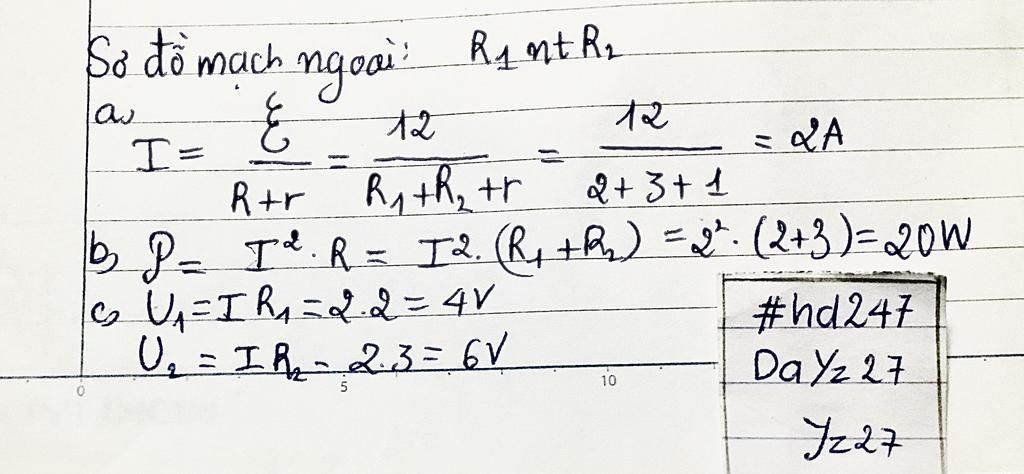 Sơ đồ mạch ngoài: R₁ nt R₂
a,
I = ℰ/(R+r) = 12/(R₁+R₂+r) = 12/(2+3+1) = 2A
b, P = I².R = I².(R₁+R₂) = 2².(2+3) = 20W
c, U₁ = I R₁ = 2.2 = 4V
U₂ = I R₂ - 2.3 = 6V
0 5 10
#hd247
DaYz27
Yz27